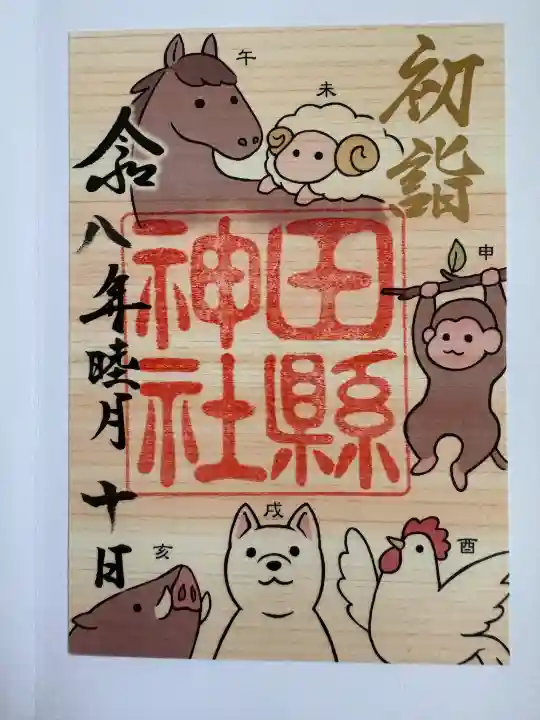 初詣
午
未
申
酉
戌
亥
田縣
神社
令和八年睦月十日